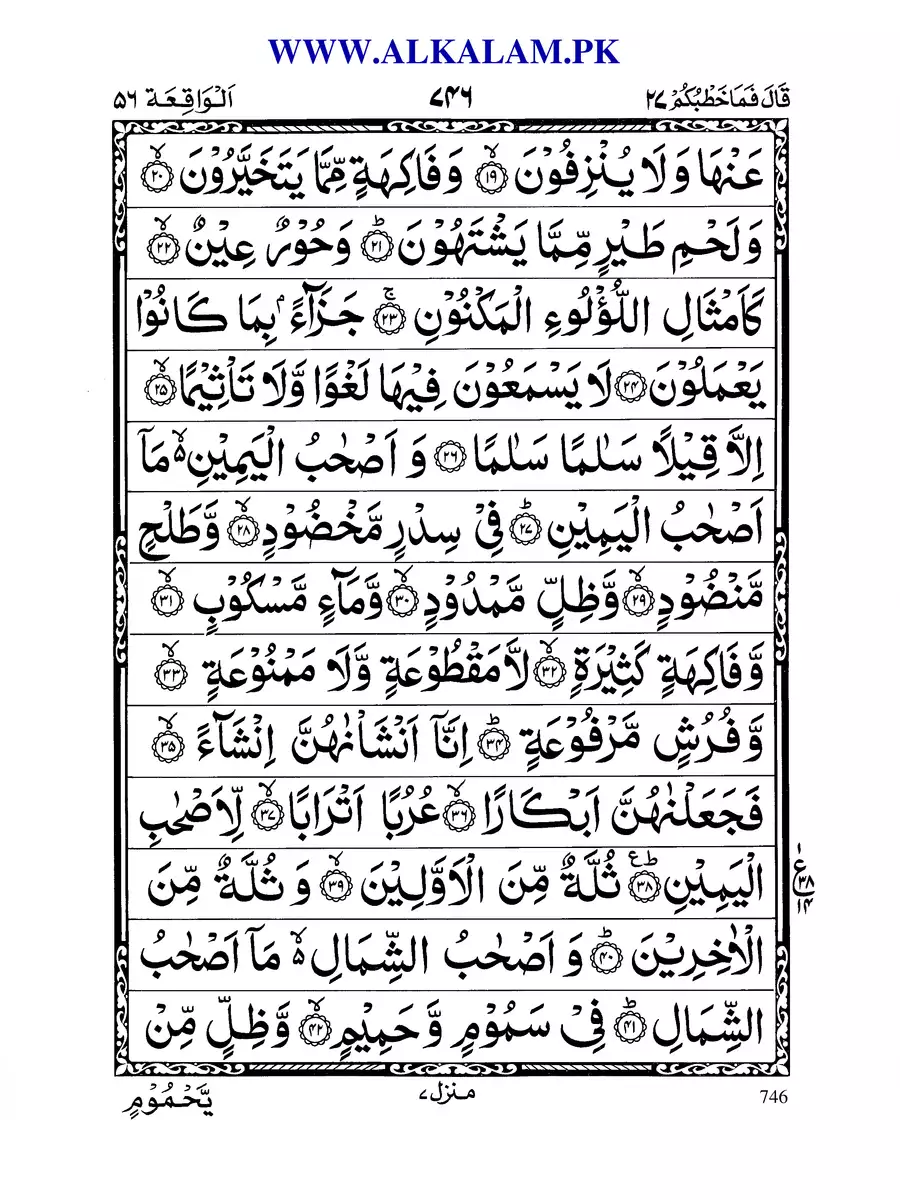 WWW.ALKALAM.PK
قَالَ فَمَا خَطْبُكُمْ ٢٧
٧٤٦
اَلْوَاقِعَة ٥٦
عَنْهَا وَلَا يُنْزِفُوْنَ ۙ﴿١٩﴾ وَفَاكِهَةٍ مِّمَّا يَتَخَيَّرُوْنَ ۙ﴿٢٠﴾
وَلَحْمِ طَيْرٍ مِّمَّا يَشْتَهُوْنَ ؕ﴿٢١﴾ وَحُوْرٌ عِيْنٌ ۙ﴿٢٢﴾
كَاَمْثَالِ اللُّؤْلُوءِ الْمَكْنُوْنِ ۚ﴿٢٣﴾ جَزَآءًۢ بِمَا كَانُوْا
يَعْمَلُوْنَ ﴿٢٤﴾ لَا يَسْمَعُوْنَ فِيْهَا لَغْوًا وَّلَا تَاْثِيْمًا ۙ﴿٢٥﴾
اِلَّا قِيْلًا سَلٰمًا سَلٰمًا ﴿٢٦﴾ وَ اَصْحٰبُ الْيَمِيْنِ ۙ۬ مَاۤ
اَصْحٰبُ الْيَمِيْنِ ؕ﴿٢٧﴾ فِيْ سِدْرٍ مَّخْضُوْدٍ ۙ﴿٢٨﴾ وَّطَلْحٍ
مَّنْضُوْدٍ ۙ﴿٢٩﴾ وَّظِلٍّ مَّمْدُوْدٍ ۙ﴿٣٠﴾ وَّمَآءٍ مَّسْكُوْبٍ ۙ﴿٣١﴾
وَّفَاكِهَةٍ كَثِيْرَةٍ ۙ﴿٣٢﴾ لَّا مَقْطُوْعَةٍ وَّلَا مَمْنُوْعَةٍ ۙ﴿٣٣﴾
وَّفُرُشٍ مَّرْفُوْعَةٍ ؕ﴿٣٤﴾ اِنَّاۤ اَنْشَاْنٰهُنَّ اِنْشَآءً ۙ﴿٣٥﴾
فَجَعَلْنٰهُنَّ اَبْكَارًا ۙ﴿٣٦﴾ عُرُبًا اَتْرَابًا ۙ﴿٣٧﴾ لِّاَصْحٰبِ
الْيَمِيْنِ ؕ﴿٣٨﴾ ثُلَّةٌ مِّنَ الْاَوَّلِيْنَ ۙ﴿٣٩﴾ وَ ثُلَّةٌ مِّنَ
الْاٰخِرِيْنَ ؕ﴿٤٠﴾ وَ اَصْحٰبُ الشِّمَالِ ۙ۬ مَاۤ اَصْحٰبُ
الشِّمَالِ ؕ﴿٤١﴾ فِيْ سَمُوْمٍ وَّحَمِيْمٍ ۙ﴿٤٢﴾ وَّظِلٍّ مِّنْ
١
ع ٣٨
١٤
746
منزل ٧
يَّحْمُوْمٍ